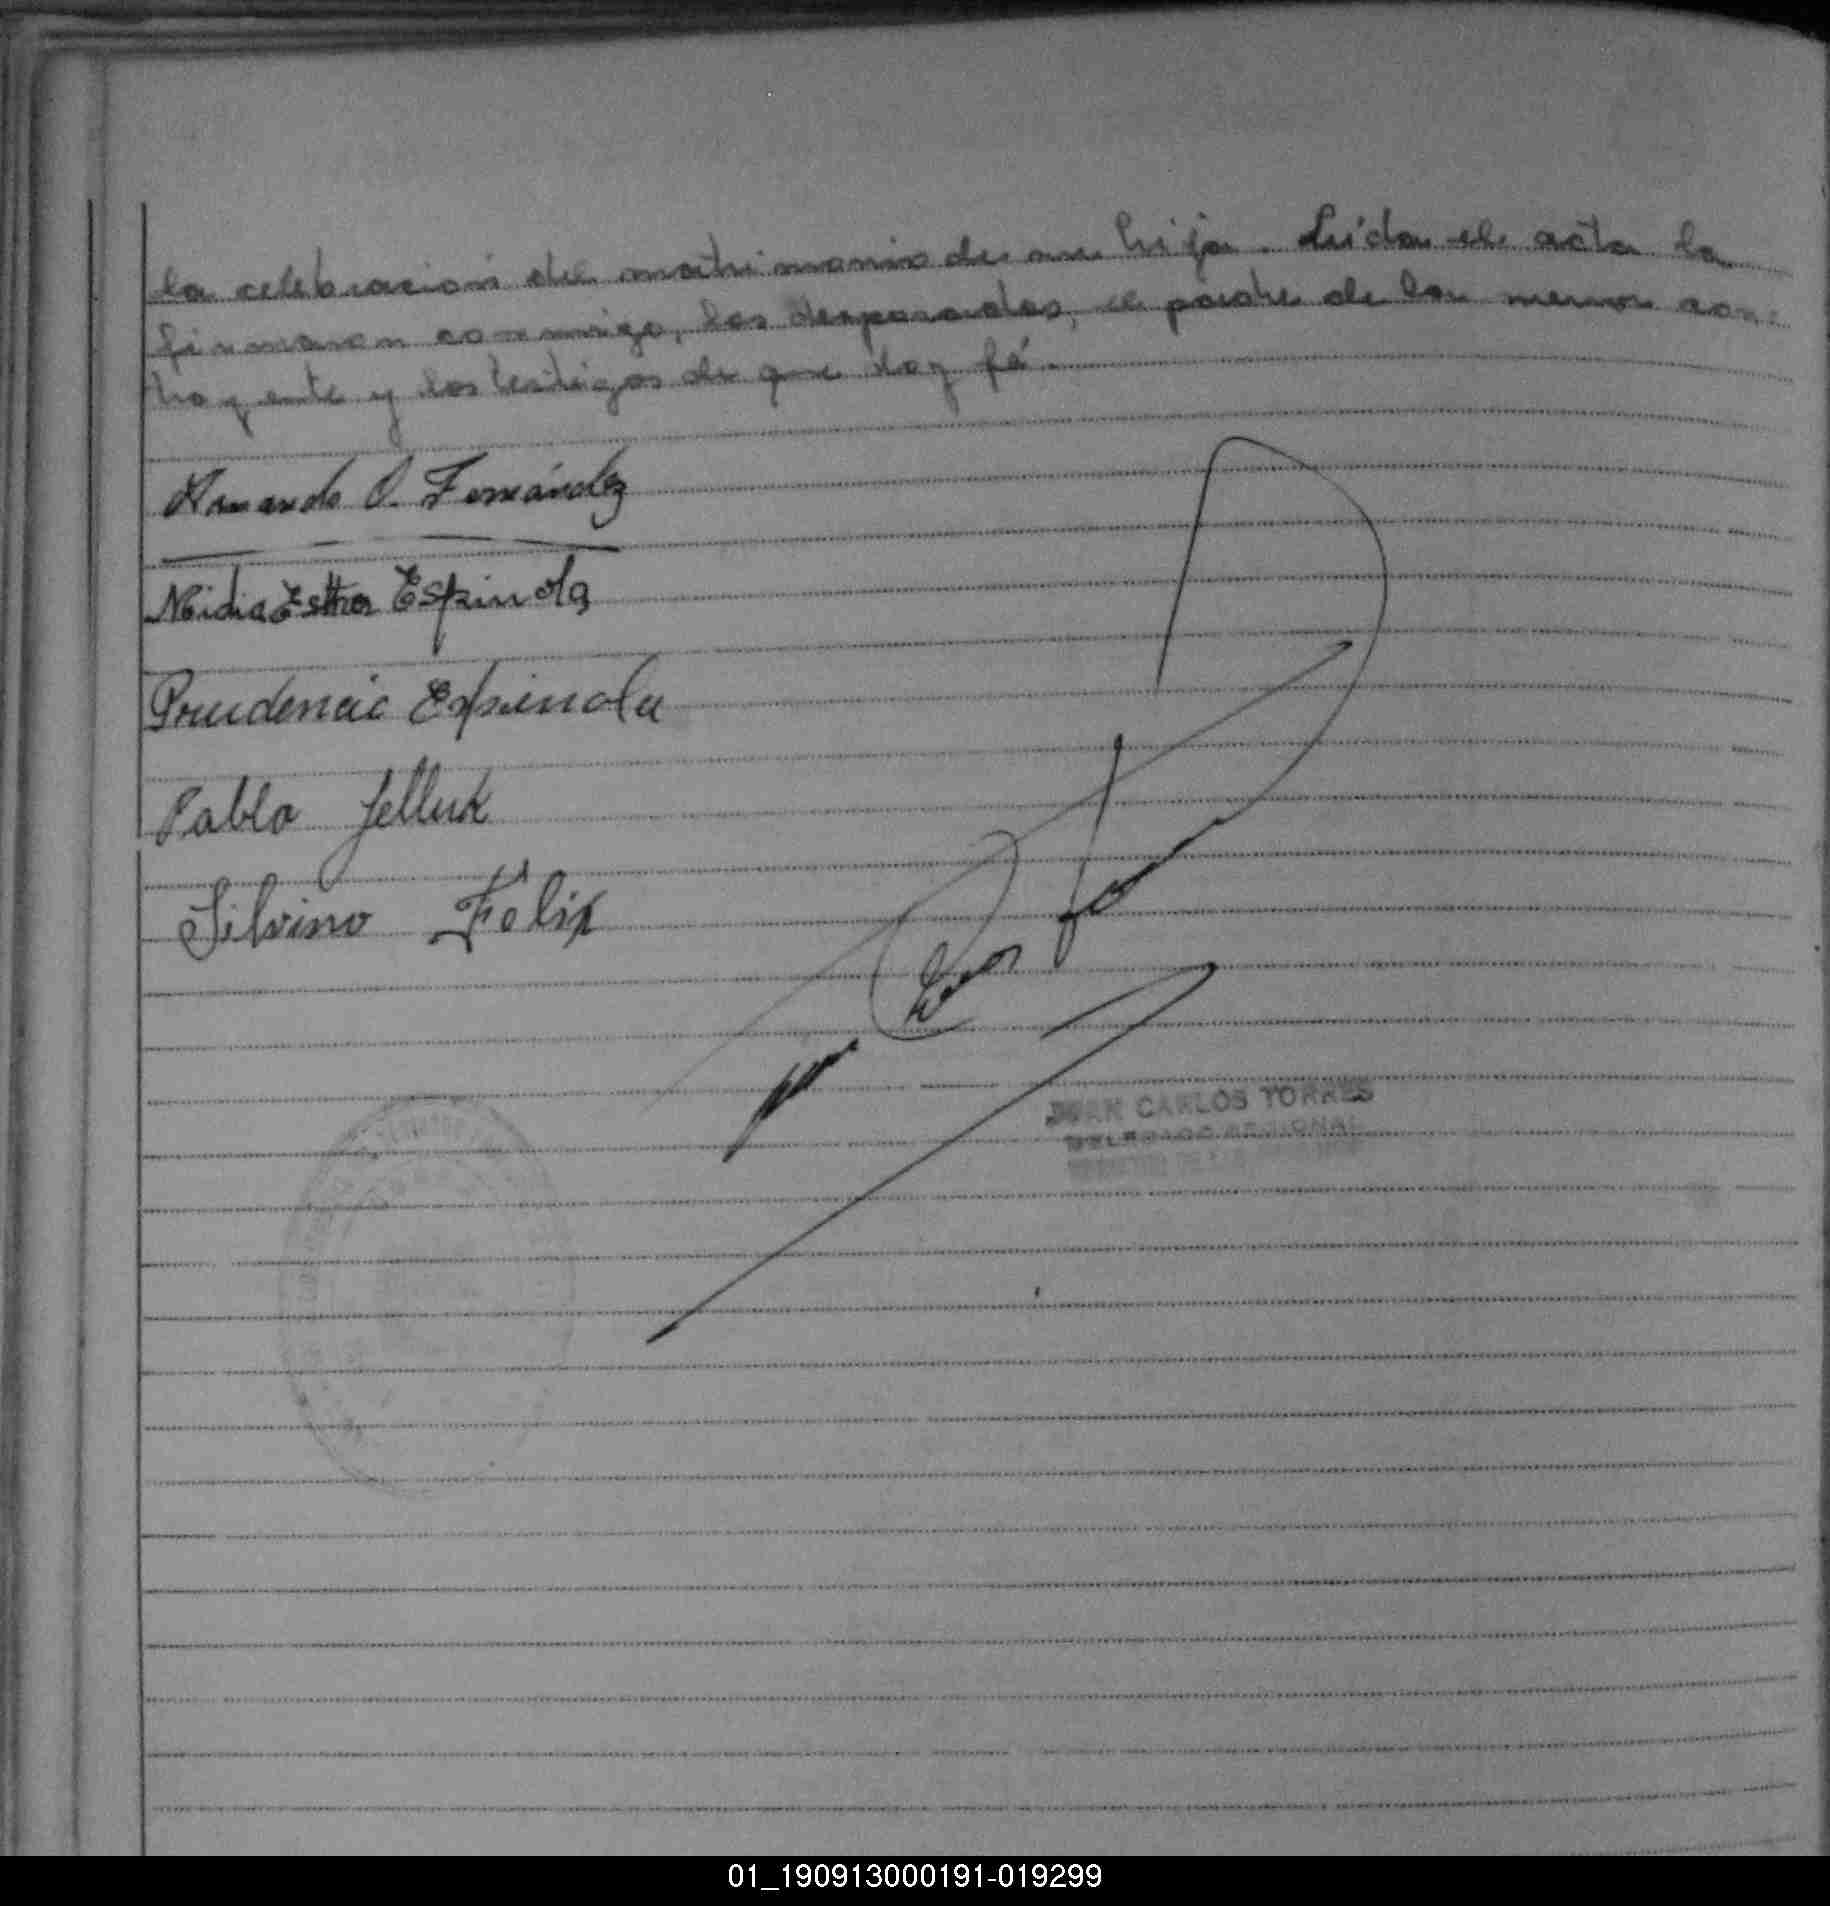 la celebración del matrimonio de su hija. Leída el acta la
firmaron conmigo, los desposados, el padre de la menor con-
trayente y los testigos de que doy fé.
Armando O. Fernández
Nidia Esther Espinola
Prudencio Espinola
Pablo Jelluk
Silvino Félix
JUAN CARLOS TORRES
DELEGADO REGIONAL
01_190913000191-019299